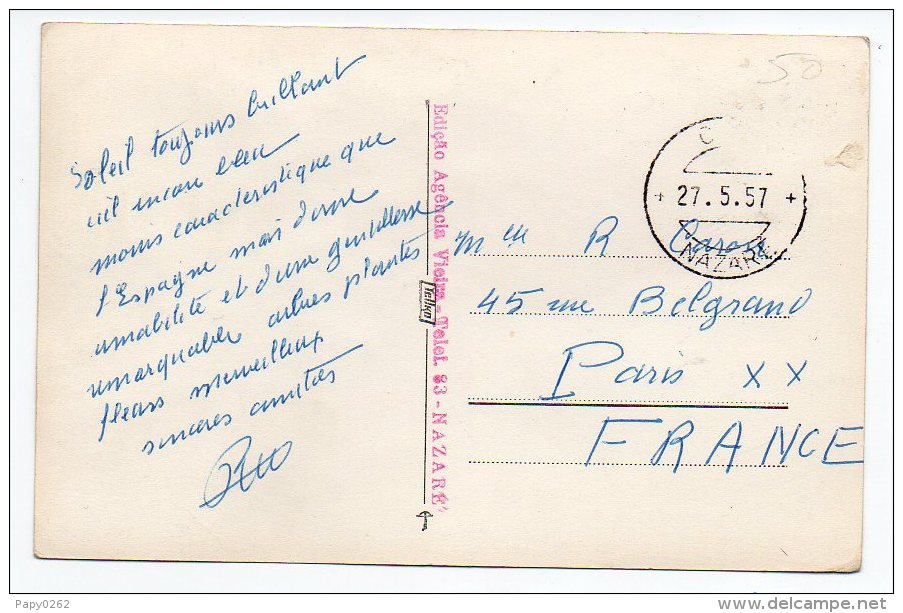 Soleil toujours brillant
ciel encore bleu
moins caracteristique que
l'Espagne mais d'une
amabilité et d'une gentillesse
remarquable arbres plantes
fleurs merveilleux
sincères amitiés
Edição Agência Vieira - Telef. 83 - NAZARÉ
Telka
50
27.5.57
NAZARÉ
Melle R
45 rue Belgrand
Paris XX
FRANCE
Papy0262
delcampe.net